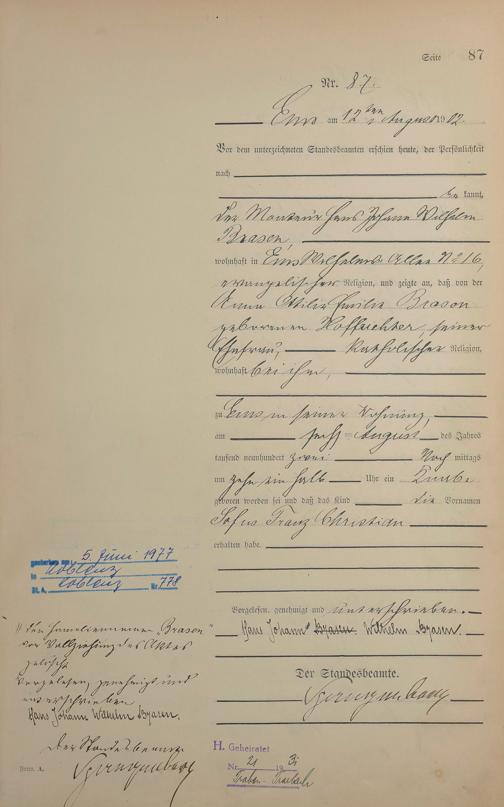 Seite 87
Nr. 87.
Ems am 12ten August 1902.
Vor dem unterzeichneten Standesbeamten erschien heute, der Persönlichkeit
nach
be kannt,
der Monteur Hans Johann Wilhelm
Brasen,
wohnhaft in Ems Wilhelms Allee No 16,
evangelischer Religion, und zeigte an, daß von der
Anna Emilie Brasen
geborenen seiner
Ehefrau, katholischer Religion,
wohnhaft bei ihm,
zu Ems in seiner Wohnung,
am sechs August des Jahres
tausend neunhundert zwei Nach mittags
um zehn ein halb Uhr ein Knabe
geboren worden sei und daß das Kind die Vornamen
Franz Christian
erhalten habe.
Vorgelesen, genehmigt und unterschrieben.
Hans Johann Brasen Wilhelm Brasen.
Der Standesbeamte.
gestorben am 5. Juni 1977
in Koblenz
St. A. Koblenz Nr. 778
den Familiennamen Brasen
vor Vollziehung des Aktes
Vorgelesen, genehmigt und
unterschrieben
Hans Johann Wilhelm Brasen.
Der Standesbeamte
Form. A.
H. Geheiratet
Nr. 21 19 31
Traben-Trarbach